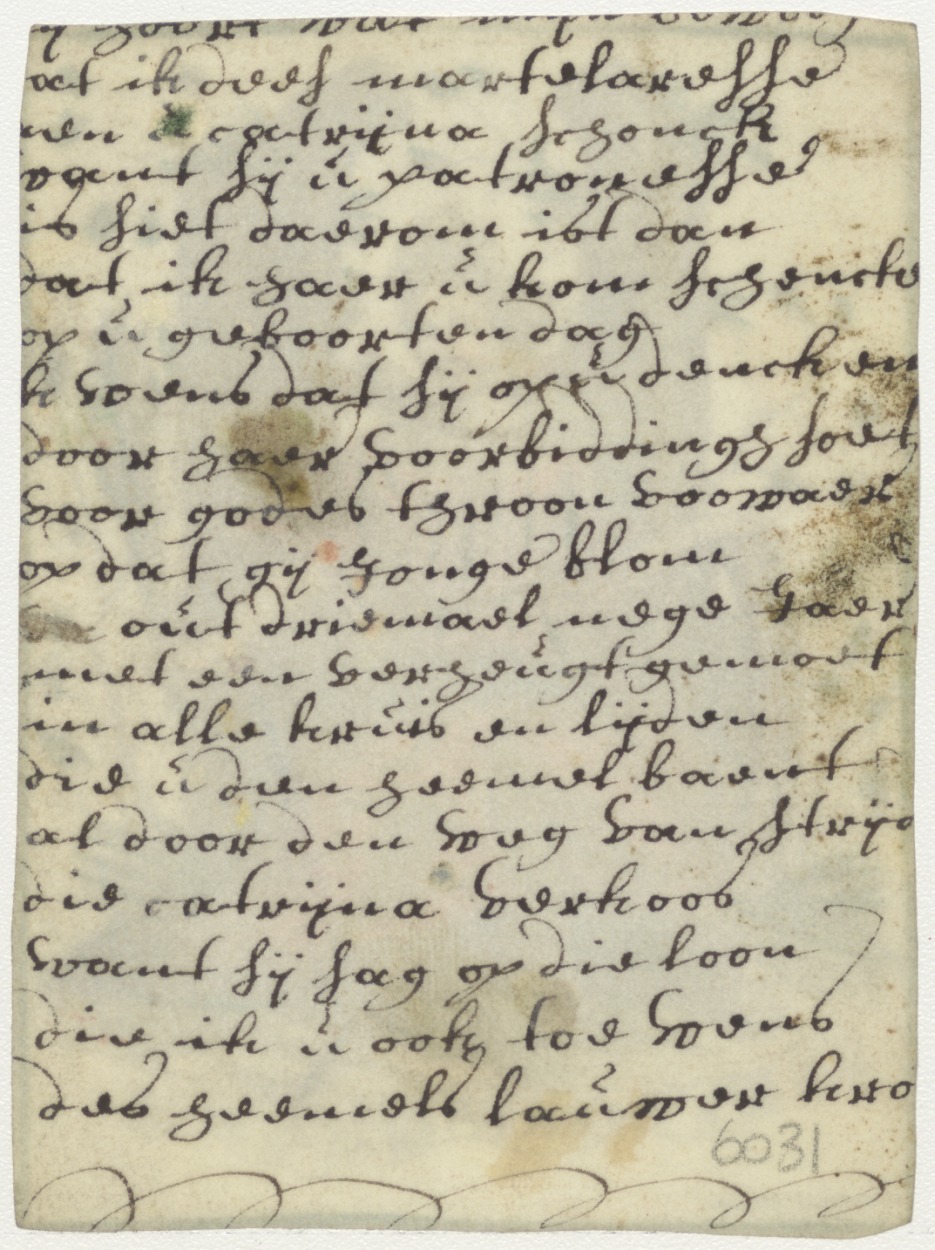 hoort wat mijn
at ik dees martelaresse
en u catrijna schonck
want sij u patronesse
is siet daerom ist dan
dat ik haer u kom schencke
op u geboorten dag
k wens dat sij op u dencken
door haer voorbiddingh soet
voor godes throon voorwaer
op dat gij jonge blom
out driemael nege Jaer
met een verheugt gemoet
in alle kruis en lijden
die u den heemel baent
al door den weg van strijd
die catrijna verkoos
want sij sag op die loon
die ik u ook toe wens
des heemels lauwer kro
6031